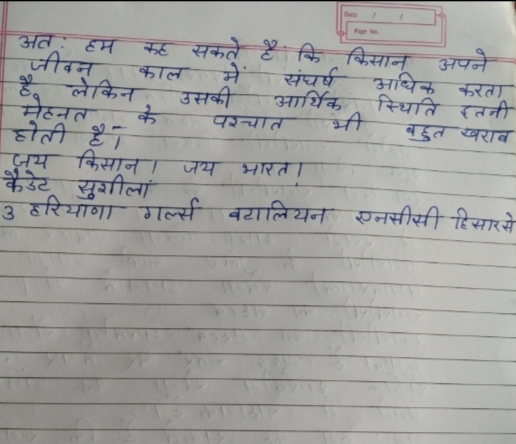 Date / /
Page No.
अत: हम कह सकते है कि किसान अपने
जीवन काल में संघर्ष अधिक करता
है लेकिन उसकी आर्थिक स्थिति इतनी
मेहनत के पश्चात भी बहुत खराब
होती है।
जय किसान। जय भारत।
कैडेट सुशीला
3 हरियाणा गर्ल्स बटालियन एनसीसी हिसार से